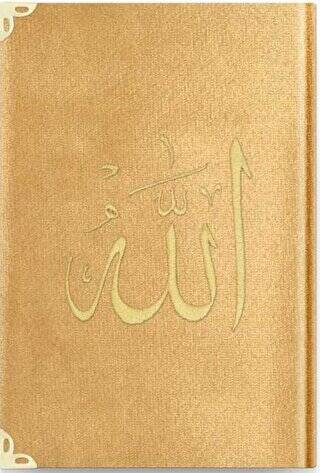 الله